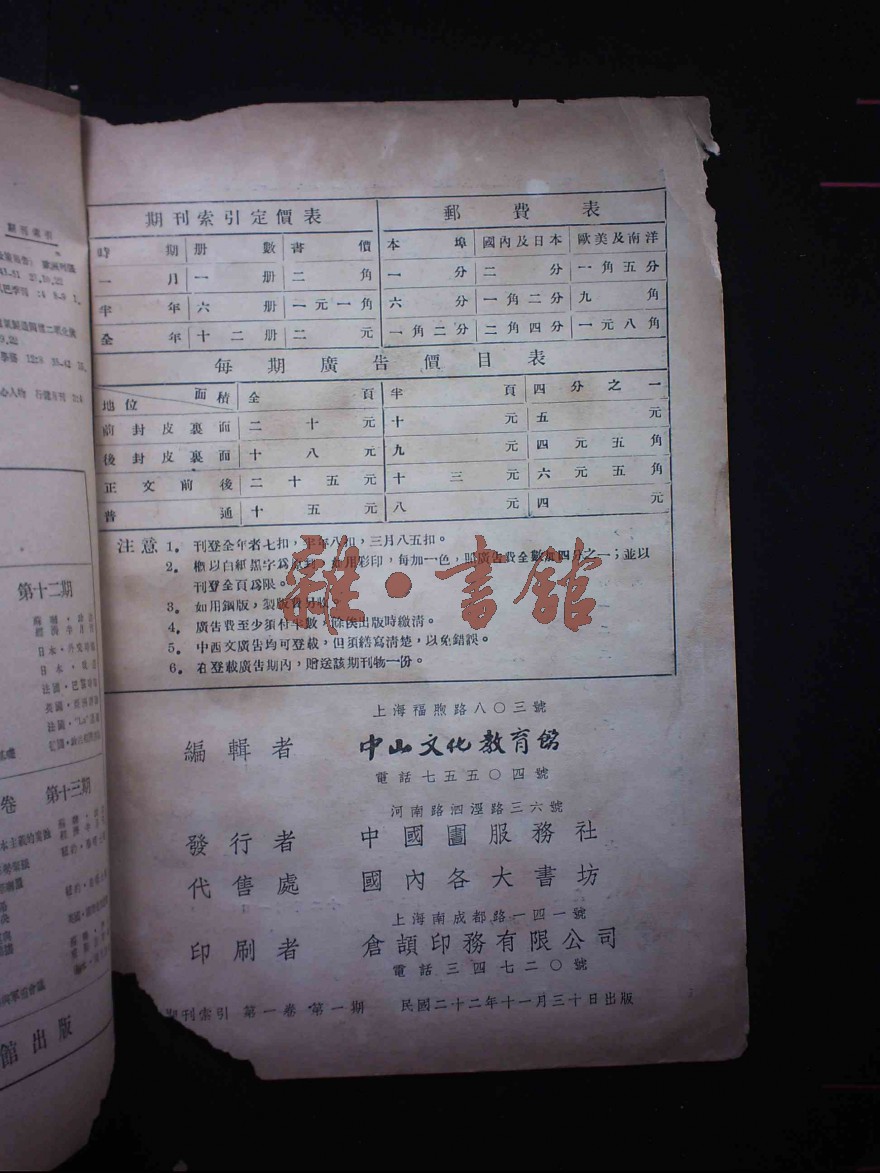 期刊索引定價表
時期 册數 書價
一月 一册 二角
半年 六册 一元一角
全年 十二册 二元
郵費表
本埠 國內及日本 歐美及南洋
一分 二分 一角五分
六分 一角二分 九角
一角二分 二角四分 一元八角
每期廣告價目表
地位 面積 全頁 半頁 四分之一
前封皮裏面 二十元 十元 五元
後封皮裏面 十八元 九元 四元五角
正文前後 二十五元 十三元 六元五角
普通 十五元 八元 四元
注意 1. 刊登全年者七扣,半年八扣,三月八五扣。
2. 概以白紙黑字爲 如用彩印,每加一色,照廣告費全數加四分之一;並以
刊登全頁爲限。
3. 如用鋼版,製版費另收
4. 廣告費至少須付半數,餘俟出版時繳清。
5. 中西文廣告均可登載,但須繕寫清楚,以免錯誤。
6. 在登載廣告期內,贈送該期刊物一份。
雜·書館
上海福煦路八〇三號
編輯者 中山文化教育館
電話七五五〇四號
河南路泗涇路三六號
發行者 中國圖服務社
代售處 國內各大書坊
上海南成都路一四一號
印刷者 倉頡印務有限公司
電話三四七二〇號
期刊索引 第一卷 第一期 民國二十二年十一月三十日出版
期刊索引
第十二期
卷 第十三期
館出版